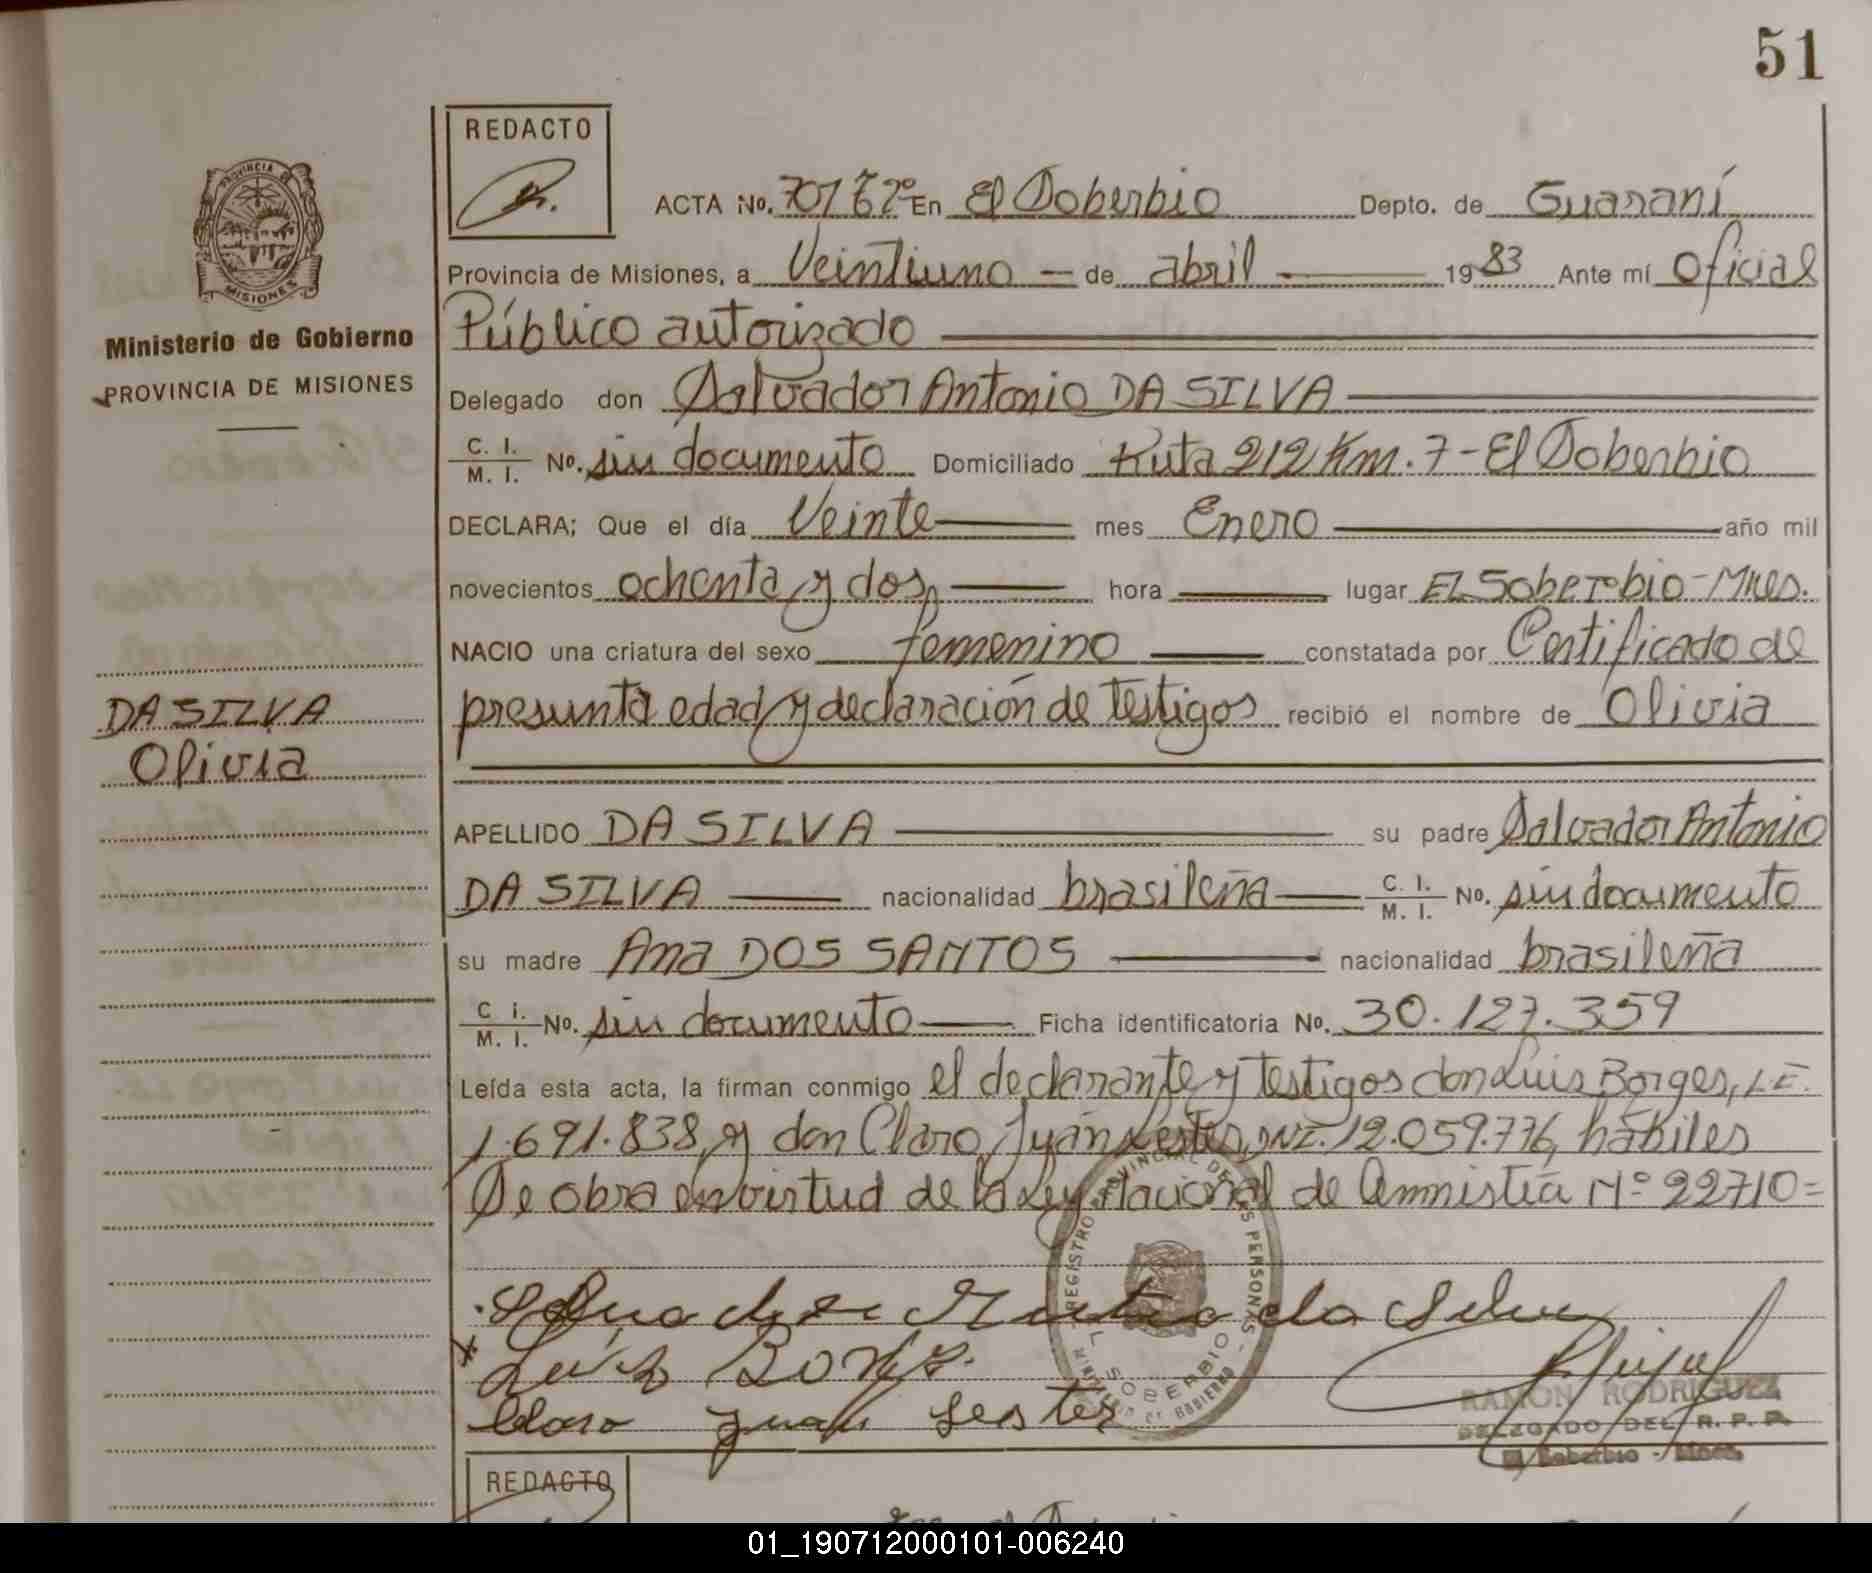 51
REDACTO
ACTA No. 701 En El Soberbio Depto. de Guaraní
Provincia de Misiones, a Veintiuno — de abril — 1983 Ante mí Oficial
Público autorizado
Delegado don Salvador Antonio DA SILVA
C. I. / M. I. No. sin documento Domiciliado Ruta 212 Km. 7 - El Soberbio
DECLARA; Que el día Veinte mes Enero año mil
novecientos ochenta y dos, hora lugar EL Soberbio - Mnes.
NACIO una criatura del sexo femenino constatada por Certificado de
presunta edad y declaración de Testigos recibió el nombre de Olivia
APELLIDO DA SILVA su padre Salvador Antonio
DA SILVA nacionalidad brasileña C. I. / M. I. No. sin documento
su madre Ana DOS SANTOS nacionalidad brasileña
C. I. / M. I. No. sin documento Ficha identificatoria No. 30.127.359
Leída esta acta, la firman conmigo el declarante y Testigos don Luis Borges, L.E.
1.691.838, y don Claro Juan Lester, DNI. 12.059.776, hábiles
Se obra en virtud de la Ley Nacional de Amnistía N° 22710=
PROVINCIA DE
MISIONES
Ministerio de Gobierno
PROVINCIA DE MISIONES
DA SILVA
Olivia
REGISTRO PROVINCIAL DE LAS PERSONAS
EL SOBERBIO
MINISTERIO DE GOBIERNO
Luis Borges
Claro Juan Lester
RAMON RODRIGUEZ
DELEGADO DEL R. P. P.
El Soberbio - Mnes.
REDACTO
01_190712000101-006240